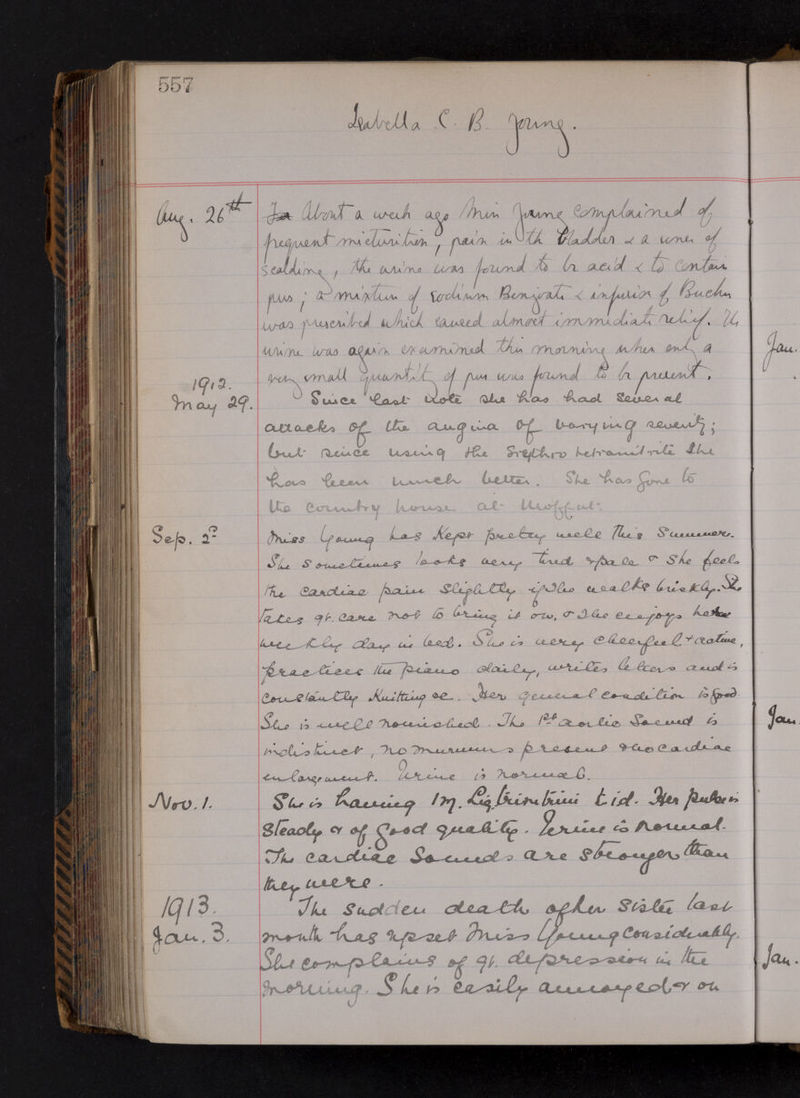 557
Isabella C. B. Young.
Aug. 26th About a week ago Miss Young complained of
frequent micturition, pain in th bladder & a sense of
scalding, the urine was found to be acid & to contain
pus; a mixture of Sodium Benzoate & infusion of Buchu
was prescribed which caused almost immediate relief. The
urine was again examined this morning when only a
very small quantity of pus was found to be present.
1912.
May 29. Since last note she has had several
attacks of the angina of varying severity;
but since using the Erythro tetranitrite she
has been much better. She has gone to
the country house at Moffat.
Sep. 2d Miss Young has kept pretty well this Summer.
She sometimes looks very tired & pale & she feels
the cardiac pain slightly if she walks briskly. She
takes gt. care not to bring it on, & she enjoys her
weekly day in bed. She is very cheerful & active,
practices the piano daily, writes letters and is
constantly knitting &c. Her general condition is good
She is well nourished. The 1st aortic Sound is
indistinct, no murmurs present & no cardiac
enlargement. Urine is normal.
Nov. 1. She is having 1m. Liq. Trinitrini t.i.d. Her pulse is
steady & of good quality. Urine is normal.
The cardiac Sounds are stronger than
they were.
1913.
Jan. 3. The sudden death of her sister last
month has upset Miss Young considerably.
She complains of gt. depression in the
morning. She is easily annoyed & on
Jan.
Jan.
Jan.